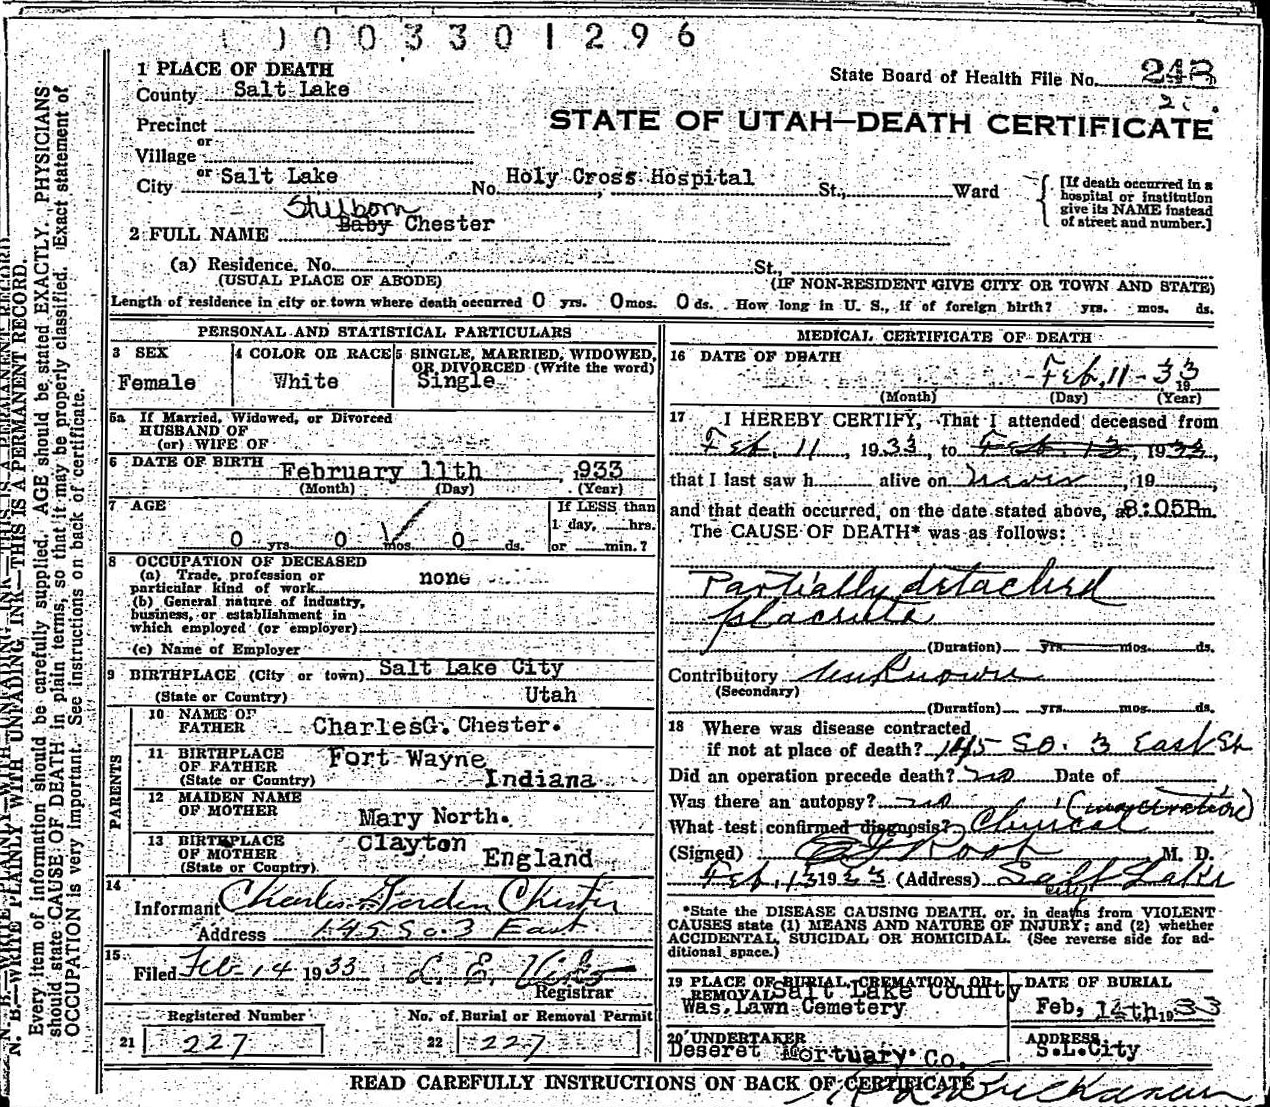 0003301296
1 PLACE OF DEATH
State Board of Health File No. 243
County Salt Lake
2
STATE OF UTAH—DEATH CERTIFICATE
Precinct
or
Village
or
City Salt Lake No. Holy Cross Hospital St., Ward
[If death occurred in a hospital or institution give its NAME instead of street and number.]
Stillborn
2 FULL NAME Baby Chester
(a) Residence. No. St.,
(USUAL PLACE OF ABODE) (IF NON-RESIDENT GIVE CITY OR TOWN AND STATE)
Length of residence in city or town where death occurred 0 yrs. 0 mos. 0 ds. How long in U. S., if of foreign birth? yrs. mos. ds.
PERSONAL AND STATISTICAL PARTICULARS
3 SEX
Female
4 COLOR OR RACE
White
5 SINGLE, MARRIED, WIDOWED, OR DIVORCED (Write the word)
Single
5a If Married, Widowed, or Divorced
HUSBAND OF
(or) WIFE OF
6 DATE OF BIRTH February 11th, 1933
(Month) (Day) (Year)
7 AGE
0 yrs. 0 mos. 0 ds.
If LESS than
1 day, hrs.
or min.?
8 OCCUPATION OF DECEASED
(a) Trade, profession or
particular kind of work none
(b) General nature of industry,
business, or establishment in
which employed (or employer)
(c) Name of Employer
9 BIRTHPLACE (City or town) Salt Lake City
(State or Country) Utah
PARENTS
10 NAME OF
FATHER CharlesG. Chester.
11 BIRTHPLACE
OF FATHER Fort Wayne
(State or Country) Indiana
12 MAIDEN NAME
OF MOTHER Mary North.
13 BIRTHPLACE
OF MOTHER Clayton
(State or Country) England
14
Informant Charles Gorden Chester
Address 145 So. 3 East
15
Filed Feb 14 1933 L. E.
Registrar
Registered Number
21 227
No. of Burial or Removal Permit
22 227
MEDICAL CERTIFICATE OF DEATH
16 DATE OF DEATH
Feb, 11 - 33
19
(Month) (Day) (Year)
17 I HEREBY CERTIFY, That I attended deceased from
Feb. 11, 1933, to Feb. 13, 1933,
that I last saw h alive on never, 19
and that death occurred, on the date stated above, at 8:05Pm.
The CAUSE OF DEATH* was as follows:
Partially detached
placenta
(Duration) yrs. mos. ds.
Contributory unknown
(Secondary)
(Duration) yrs. mos. ds.
18 Where was disease contracted
if not at place of death? 145 So. 3 East St
Did an operation precede death? no Date of
Was there an autopsy? no (maceration)
What test confirmed diagnosis? Clinical
(Signed) Root M. D.
Feb, 13 1933 (Address) Salt Lake
City
*State the DISEASE CAUSING DEATH, or, in deaths from VIOLENT
CAUSES state (1) MEANS AND NATURE OF INJURY; and (2) whether
ACCIDENTAL, SUICIDAL OR HOMICIDAL. (See reverse side for ad-
ditional space.)
19 PLACE OF BURIAL, CREMATION, OR
REMOVAL Salt Lake County
Was. Lawn Cemetery
DATE OF BURIAL
Feb, 14th, 1933
20 UNDERTAKER
Deseret Mortuary Co.
ADDRESS
S.L.City
READ CAREFULLY INSTRUCTIONS ON BACK OF CERTIFICATE
N. B.—WRITE PLAINLY WITH UNFADING INK—THIS IS A PERMANENT RECORD.
Every item of information should be carefully supplied. AGE should be stated EXACTLY. PHYSICIANS
should state CAUSE OF DEATH in plain terms, so that it may be properly classified. Exact statement of
OCCUPATION is very important. See instructions on back of certificate.